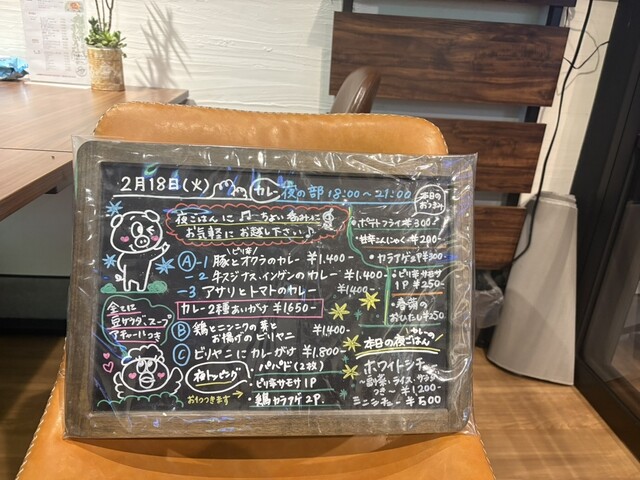 2月18日(火) カレー 夜の部 18:00〜21:00
夜ごはんに♫ 一ちょい呑みに
お気軽にお越し下さい♪
ピリ辛
Ⓐ-1 豚とオクラのカレー ¥1,400-
-2 牛スジナス、インゲンのカレー ¥1,400-
-3 アサリとトマトのカレー ¥1400-
カレー2種あいがけ ¥1650-
Ⓑ 鶏とニンニクの芽と
お揚げのビリヤニ ¥1,400-
Ⓒ ビリヤニにカレーがけ ¥1,800-
全てに
豆サラダ、スープ
アチャールつき
夜トッピング
おひとつつきます→
・パパド(2枚)
・ピリ辛サモサ1P
・鶏カラアゲ2P
本日の
おつまみ
・ポテトフライ¥300-
・甘辛こんにゃく¥200-
・カラアゲ2P¥300-
・ピリ辛サモサ
1P ¥250-
・春菊の
おひたし¥250
カレー屋の
本日の夜ごはん
ホワイトシチュー
〜副菜・ライス・サラダ
つき〜 ¥1200-
ミニシチュー ¥500